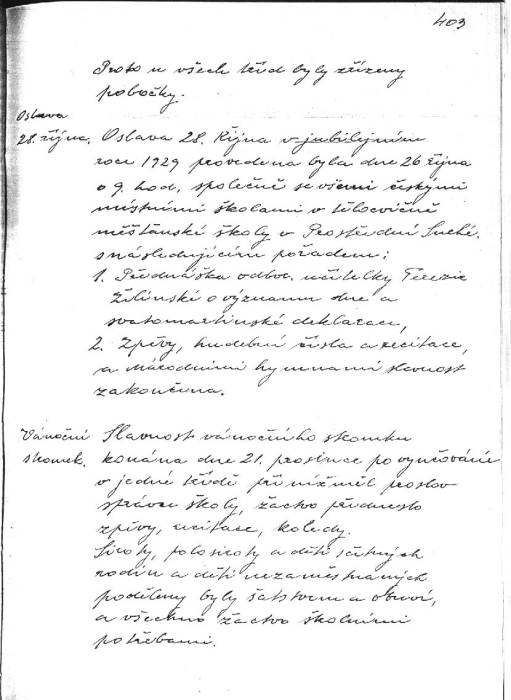 403
Proto u všech tříd byly zřízeny
pobočky.
Oslava
28. října.
Oslava 28. října v jubilejním
roce 1929 provedena byla dne 26 října
o 9. hod. společně se všemi českými
místními školami v tělocvičně
měšťanské školy v Prostřední Suché.
s následujícím pořadem:
1. Přednáška odbor. učitelky Terezie
Žilinské o významu dne a
svatomartinské deklarace,
2. Zpěvy, hudební čísla a recitace,
a národními hymnami slavnost
zakončena.
Vánoční
stromek.
Slavnost vánočního stromku
konána dne 21. prosince po vyučování
v jedné třídě při níž měl proslov
správce školy, žactvo předneslo
zpěvy, recitace, koledy.
Siroty, polosiroty a děti četných
rodin a děti nezaměstnaných
poděleny byly šatstvem a obuví,
a všechno žactvo školními
potřebami.